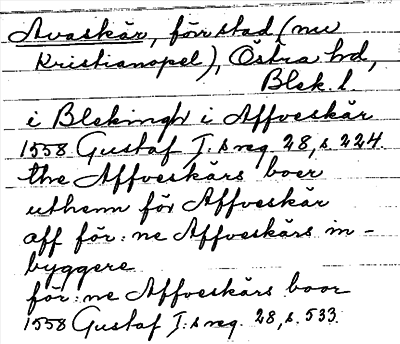 Avaskär, förr stad (nu
Kristianopel), Östra hd,
Blek. l.
i Blekingh i Affveskär
1558 Gustaf I:s reg. 28, s. 224.
the Affveskärs boer
uthenn för Affveskär
aff för:ne Affveskärs in-
byggere
för:ne Affveskärs boor
1558 Gustaf I:s reg. 28, s. 533.